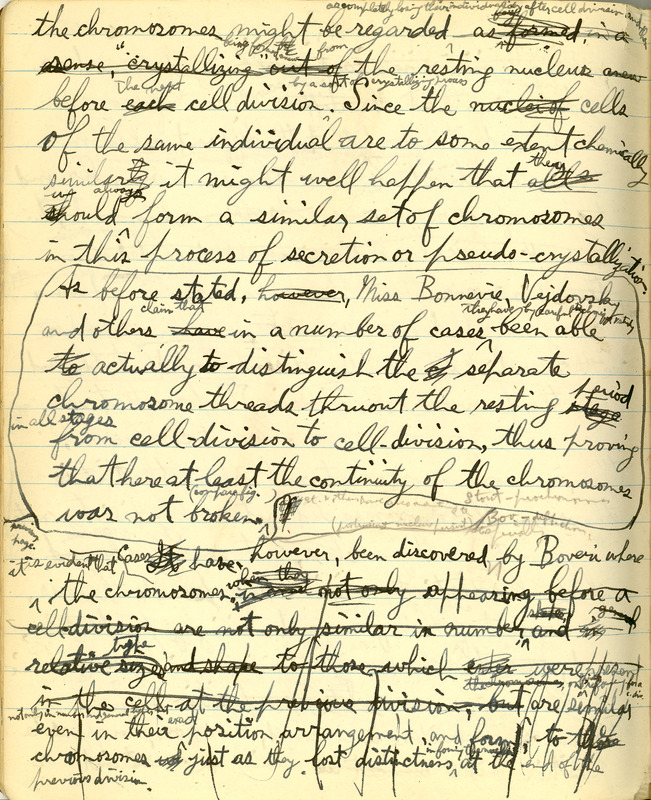 as completely losing their individuality after cell division and
the chromosomes might be regarded as formed, in a
being
sense, "crystallizing" out of from the resting nucleus anew
the next by a sort of crystallizing process
before each cell division. Since the nuclei of cells
of the same individual are to some extent chemically
similar it might well happen that all they
always
should form a similar set of chromosomes
in this process of secretion or pseudo-crystallization.
As before stated, however, Miss Bonnevie, Vejdovsky
claim that they have by careful
and others have in a number of cases been able
to actually to distinguish the separate
chromosome threads thruout the resting stage period
in all stages
from cell-division to cell-division, thus proving
that here at least the continuity of the chromosomes
was not broken.
previous page.
it is evident that Cases have, however, been discovered by Boveri where
when they
the chromosomes, not only appearing before a
cell division are not only similar in number and
type
relative size and shape to those which were
in the cell at the previous division, but are similar
not only in number and general exact
even in their position arrangement, and form, to the
chromosomes just as they lost distinctness at the end of the
previous division.